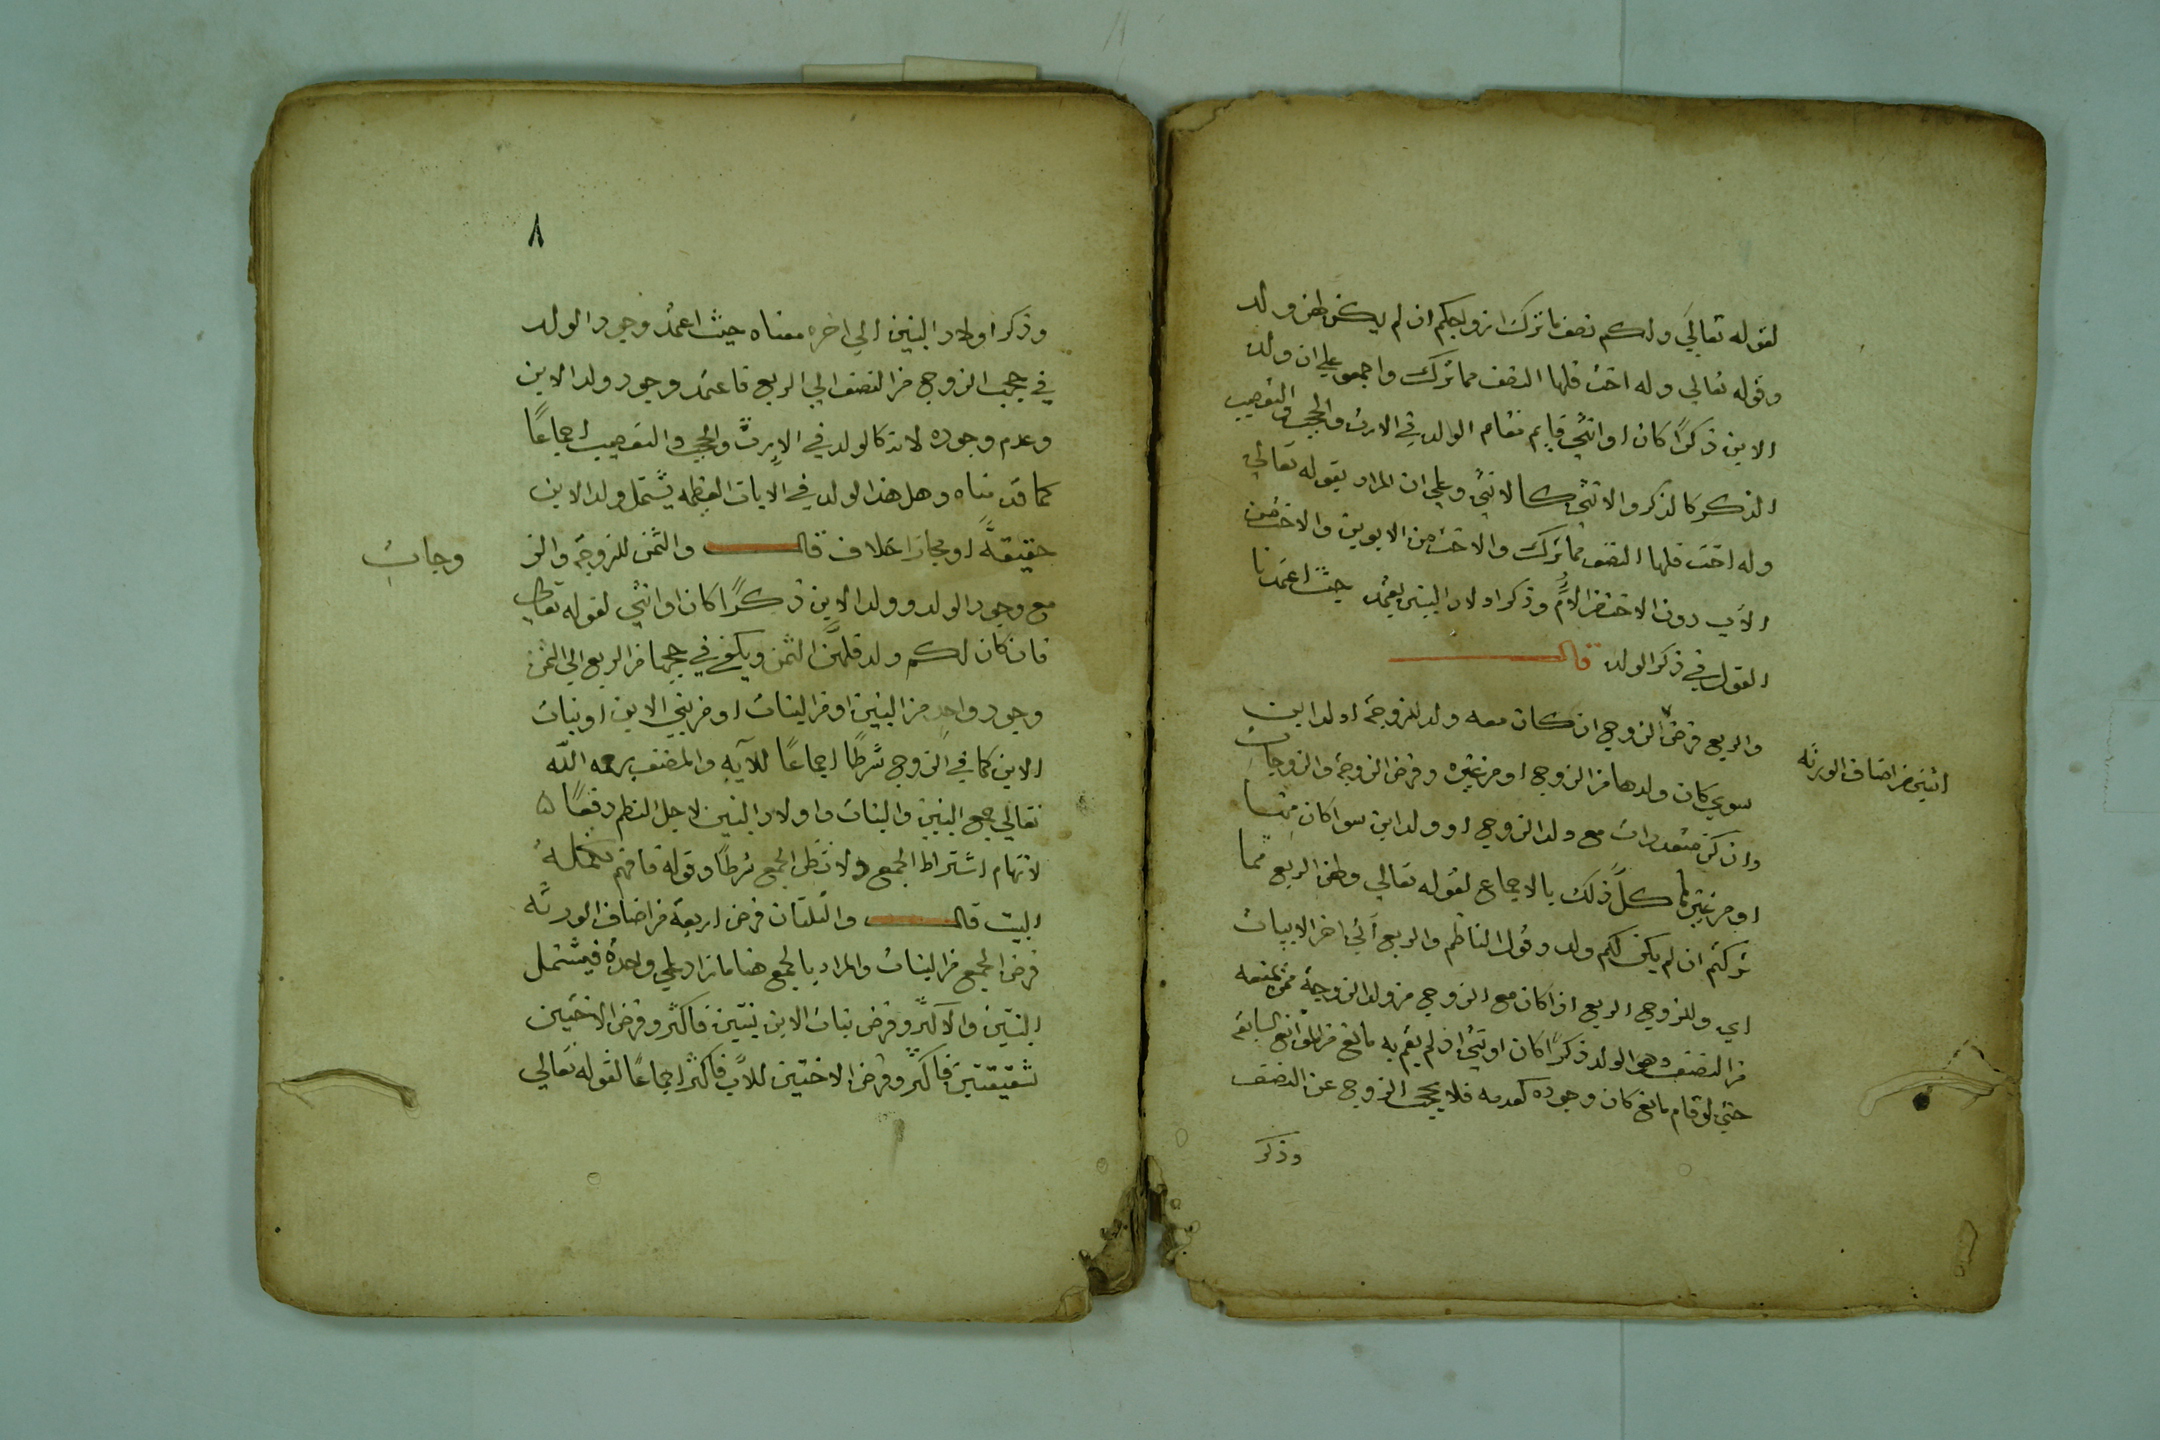 لقوله تعالي ولكم نصف ما ترك ازواجكم ان لم يكن لهن ولد
وقوله تعالي وله اخت فلها النصف مما ترك واجمعوا علي ان ولد
الابن ذكرًا كان او انثي قايم مقام الولد في الارث والحجب والتعصيب
الذكر كالذكر والانثي كالانثي وعلي ان المراد بقوله تعالي
وله اخت فلها النصف مما ترك والاخت من الابوين والاخت من
الاب دون الاخت من الام وذكر اولاد البنين يعتمد حيث اعتمدنا
القول في ذكر الولد قال
والربع فرض الزوج ان كان معه ولد للزوجة او ولد ابن
اثنين من اصناف الورثه
سوي كان ولدها من الزوج او من غيره وفرض الزوجة والزوجات
وان كن متعددات مع ولد الزوج او ولد ابن سوا كان منها
او من غيرها كل ذلك بالاجماع لقوله تعالي ولهن الربع مما
تركتم ان لم يكن لكم ولد وقول الناظم والربع الي اخر الابيات
اي وللزوج الربع اذا كان مع الزوج من ولد الزوجة من يمنعه
من النصف وهو الولد ذكرًا كان او انثي اذ لم يقم به مانع من الموانع السابقة
حتي لو قام مانع كان وجوده كعدمه فلا يحجب الزوج عن النصف
وذكر
٨
وذكر اولاد البنين الي اخره معناه حيث اعتمد وجود الولد
في حجب الزوج من النصف الي الربع فاعتمد وجود ولد الابن
وعدم وجوده لانه كالولد في الارث والحجب والتعصيب اجماعًا
كما قدمناه وهل هذا الولد في الايات العظيمه يشتمل ولد الابن
حقيقةً او مجازا خلاف قال والثمن للزوجة والزوجات
مع وجود الولد وولد الابن ذكرًا كان او انثي لقوله تعالي
فان كان لكم ولد فلهن الثمن ويكفي في حجبها من الربع الي الثمن
وجود واحد من البنين او من البنات او من بني الابن او بنات
الابن كما في الزوج شرطًا اجماعًا للآيه والمصنف رحمه الله
تعالي جمع البنين والبنات واولاد البنين لاجل النظم دفعًا
لاتهام اشتراط الجمع ولا تظن الجمع شرطًا وقوله فافهم
البيت قال والثلثان فرض اربعة من اصناف الورثه
فرض الجمع من البنات والمراد بالجمع هنا ما زاد علي واحدة فيشتمل
البنتين والاكثر وفرض بنات الابن بنتين فاكثر وفرض الاختين
شقيقتين فاكثر وفرض الاختين للاب فاكثر اجماعًا لقوله تعالي